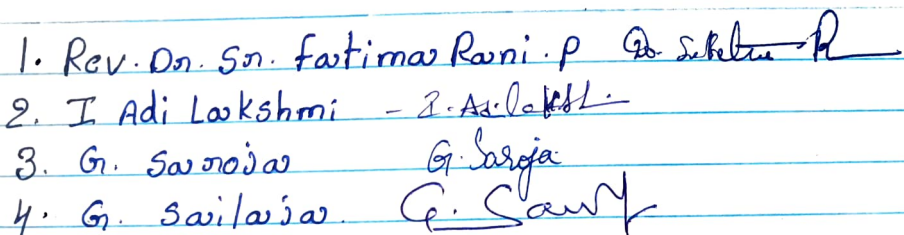 1. Rev. Dr. Sr. Fatima Rani . P
2. I Adi Lakshmi - I. Adi Lakshmi
3. G. Saroja G. Saroja
4. G. Sailaja.